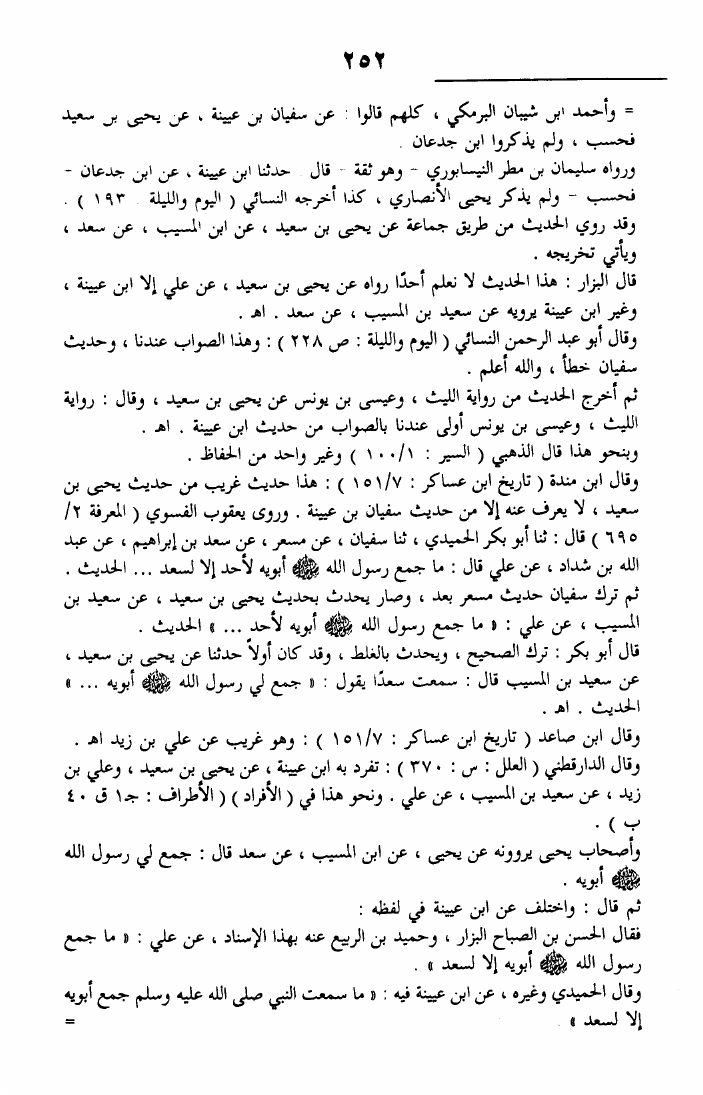 ٢٥٢
= وأحمد ابن شيبان البرمكي ، كلهم قالوا : عن سفيان بن عيينة ، عن يحيى بن سعيد
فحسب ، ولم يذكروا ابن جدعان .
ورواه سليمان بن مطر النيسابوري - وهو ثقة - قال حدثنا ابن عيينة ، عن ابن جدعان -
فحسب - ولم يذكر يحيى الأنصاري ، كذا أخرجه النسائي ( اليوم والليلة ١٩٣ ) .
وقد روي الحديث من طريق جماعة عن يحيى بن سعيد ، عن ابن المسيب ، عن سعد ،
ويأتي تخريجه .
قال البزار : هذا الحديث لا نعلم أحدًا رواه عن يحيى بن سعيد ، عن علي إلا ابن عيينة ،
وغير ابن عيينة يرويه عن سعيد بن المسيب ، عن سعد . اهـ .
وقال أبو عبد الرحمن النسائي ( اليوم والليلة : ص ٢٢٨ ) : وهذا الصواب عندنا ، وحديث
سفيان خطأ ، والله أعلم .
ثم أخرج الحديث من رواية الليث ، وعيسى بن يونس عن يحيى بن سعيد ، وقال : رواية
الليث ، وعيسى بن يونس أولى عندنا بالصواب من حديث ابن عيينة . اهـ .
وبنحو هذا قال الذهبي ( السير : ١٠٠/١ ) وغير واحد من الحفاظ .
وقال ابن مندة ( تاريخ ابن عساكر : ١٥١/٧ ) : هذا حديث غريب من حديث يحيى بن
سعيد ، لا يعرف عنه إلا من حديث سفيان بن عيينة . وروى يعقوب الفسوي ( المعرفة ٢/
٦٩٥ ) قال : ثنا أبو بكر الحميدي ، ثنا سفيان ، عن مسعر ، عن سعد بن إبراهيم ، عن عبد
الله بن شداد ، عن علي قال : ما جمع رسول الله ﷺ أبويه لأحد إلا لسعد ... الحديث .
ثم ترك سفيان حديث مسعر بعد ، وصار يحدث بحديث يحيى بن سعيد ، عن سعيد بن
المسيب ، عن علي : « ما جمع رسول الله ﷺ أبويه لأحد ... » الحديث .
قال أبو بكر : ترك الصحيح ، ويحدث بالغلط ، وقد كان أولاً حدثنا عن يحيى بن سعيد ،
عن سعيد بن المسيب قال : سمعت سعدًا يقول : « جمع لي رسول الله ﷺ أبويه ... »
الحديث . اهـ .
وقال ابن صاعد ( تاريخ ابن عساكر : ١٥١/٧ ) : وهو غريب عن علي بن زيد اهـ .
وقال الدارقطني ( العلل : س : ٣٧٠ ) : تفرد به ابن عيينة ، عن يحيى بن سعيد ، وعلي بن
زيد ، عن سعيد بن المسيب ، عن علي . ونحو هذا في ( الأفراد ) ( الأطراف : جـ١ ق ٤٠
ب ) .
وأصحاب يحيى يروونه عن يحيى ، عن ابن المسيب ، عن سعد قال : جمع لي رسول الله
ﷺ أبويه .
ثم قال : واختلف عن ابن عيينة في لفظه :
فقال الحسن بن الصباح البزار ، وحميد بن الربيع عنه بهذا الإسناد ، عن علي : « ما جمع
رسول الله ﷺ أبويه إلا لسعد » .
وقال الحميدي وغيره ، عن ابن عيينة فيه : « ما سمعت النبي صلى الله عليه وسلم جمع أبويه
إلا لسعد » =